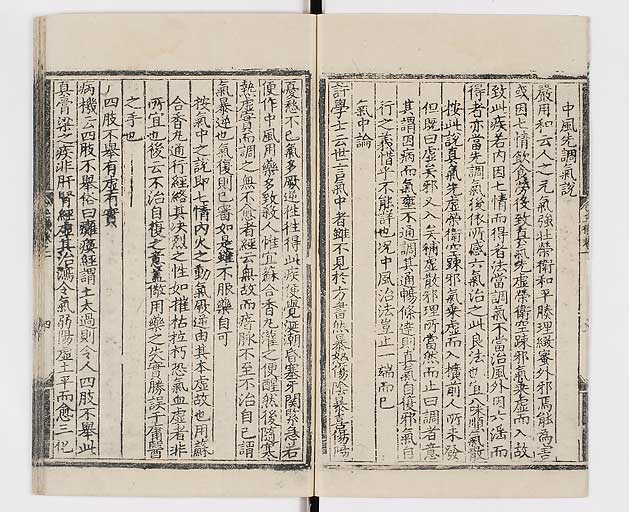 中風先調氣說
嚴用和云人之元氣強壯榮衛和平腠理緻密外邪焉能為害
或因七情飲食勞役致真氣先虛榮衛空踈邪氣乗虛而入故
致此疾若內因七情而得者法當調氣不當治風外因六淫而
得者亦當先調氣後依所感六氣治之此良法也宜八味順氣散
按此說真氣先虛榮衛空踈邪氣乗虛而入擴前人所未發
但既曰虛矣邪又入矣補虛散邪理所當然而止曰調者意
其謂因病而氣壅不通調其通暢條達則真氣自復邪氣自
行之義惜乎不能詳也况中風治法豈止一端而已
氣中論
許學士云世言氣中者雖不見於方書然暴怒傷陰暴喜傷陽
憂愁不已氣多厥逆往往得此疾便覺涎潮昏塞牙關緊急若
便作中風用藥多致殺人惟宜蘇合香丸灌之便醒然後隨寒
熱虛實而調之無不愈者經云無故而瘖脉不至不治自已謂
氣暴逆也氣復則已審如是雖不服藥自可
按氣中之說即七情內火之動氣厥逆由其本虛故也用蘇
合香丸通行經絡其决烈之性如摧枯拉朽恐氣血虛者非
所宜也後云不治自復之意盖儆用藥之失實勝誤于庸醫
之手也
四肢不舉有虛有實
病機云四肢不舉俗曰癱瘓經謂土太過則令人四肢不舉此
真膏梁之疾非肝腎經虛其治瀉令氣弱陽虛土平而愈三化